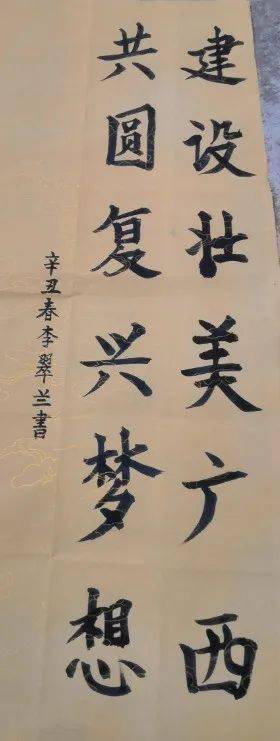 建设壮美广西
共圆复兴梦想
辛丑春李翠兰書